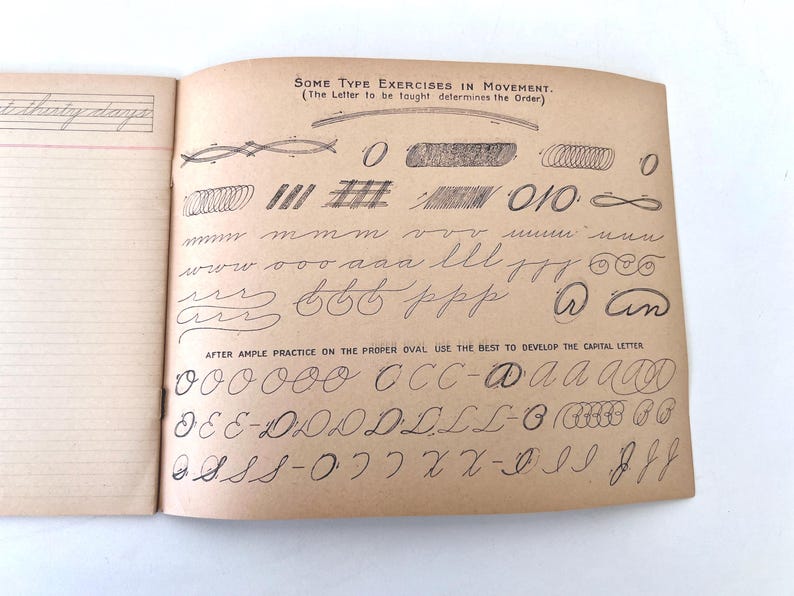 t thirty days
SOME TYPE EXERCISES IN MOVEMENT.
(The Letter to be taught determines the Order)
O O
O1O
mmm mmm vvv uuuu uuu
www ooo aaa lll jjj
rrr ppp a an
rrr
AFTER AMPLE PRACTICE ON THE PROPER OVAL USE THE BEST TO DEVELOP THE CAPITAL LETTER
O O O O O O C C C - A A A A A
O E E - D D D D L L L L - B B B
S S S S - O X X - I I I J J J